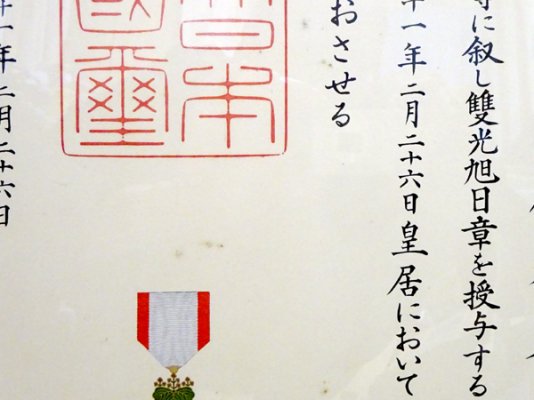 等に叙し雙光旭日章を授与する
十一年二月二十六日皇居において
おさせる
大日本
國璽
十一年二月二十六日